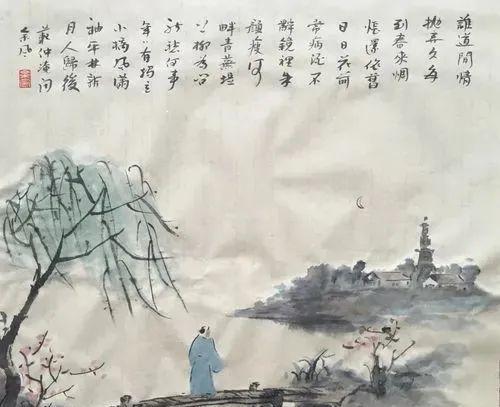 誰道閒情
拋弃久每
到春來惆
悵還依舊
日日花前
常病酒不
辭鏡裡朱
顏瘦河
畔青蕪堤
上柳為問
新愁何事
年〻有獨立
小橋風滿
袖平林新
月人歸後